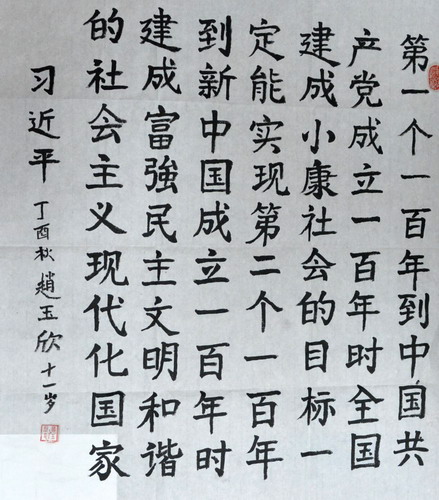 第一个一百年到中国共
产党成立一百年时全国
建成小康社会的目标一
定能实现第二个一百年
到新中国成立一百年时
建成富強民主文明和谐
的社会主义现代化国家
习近平 丁酉秋趙玉欣十一岁